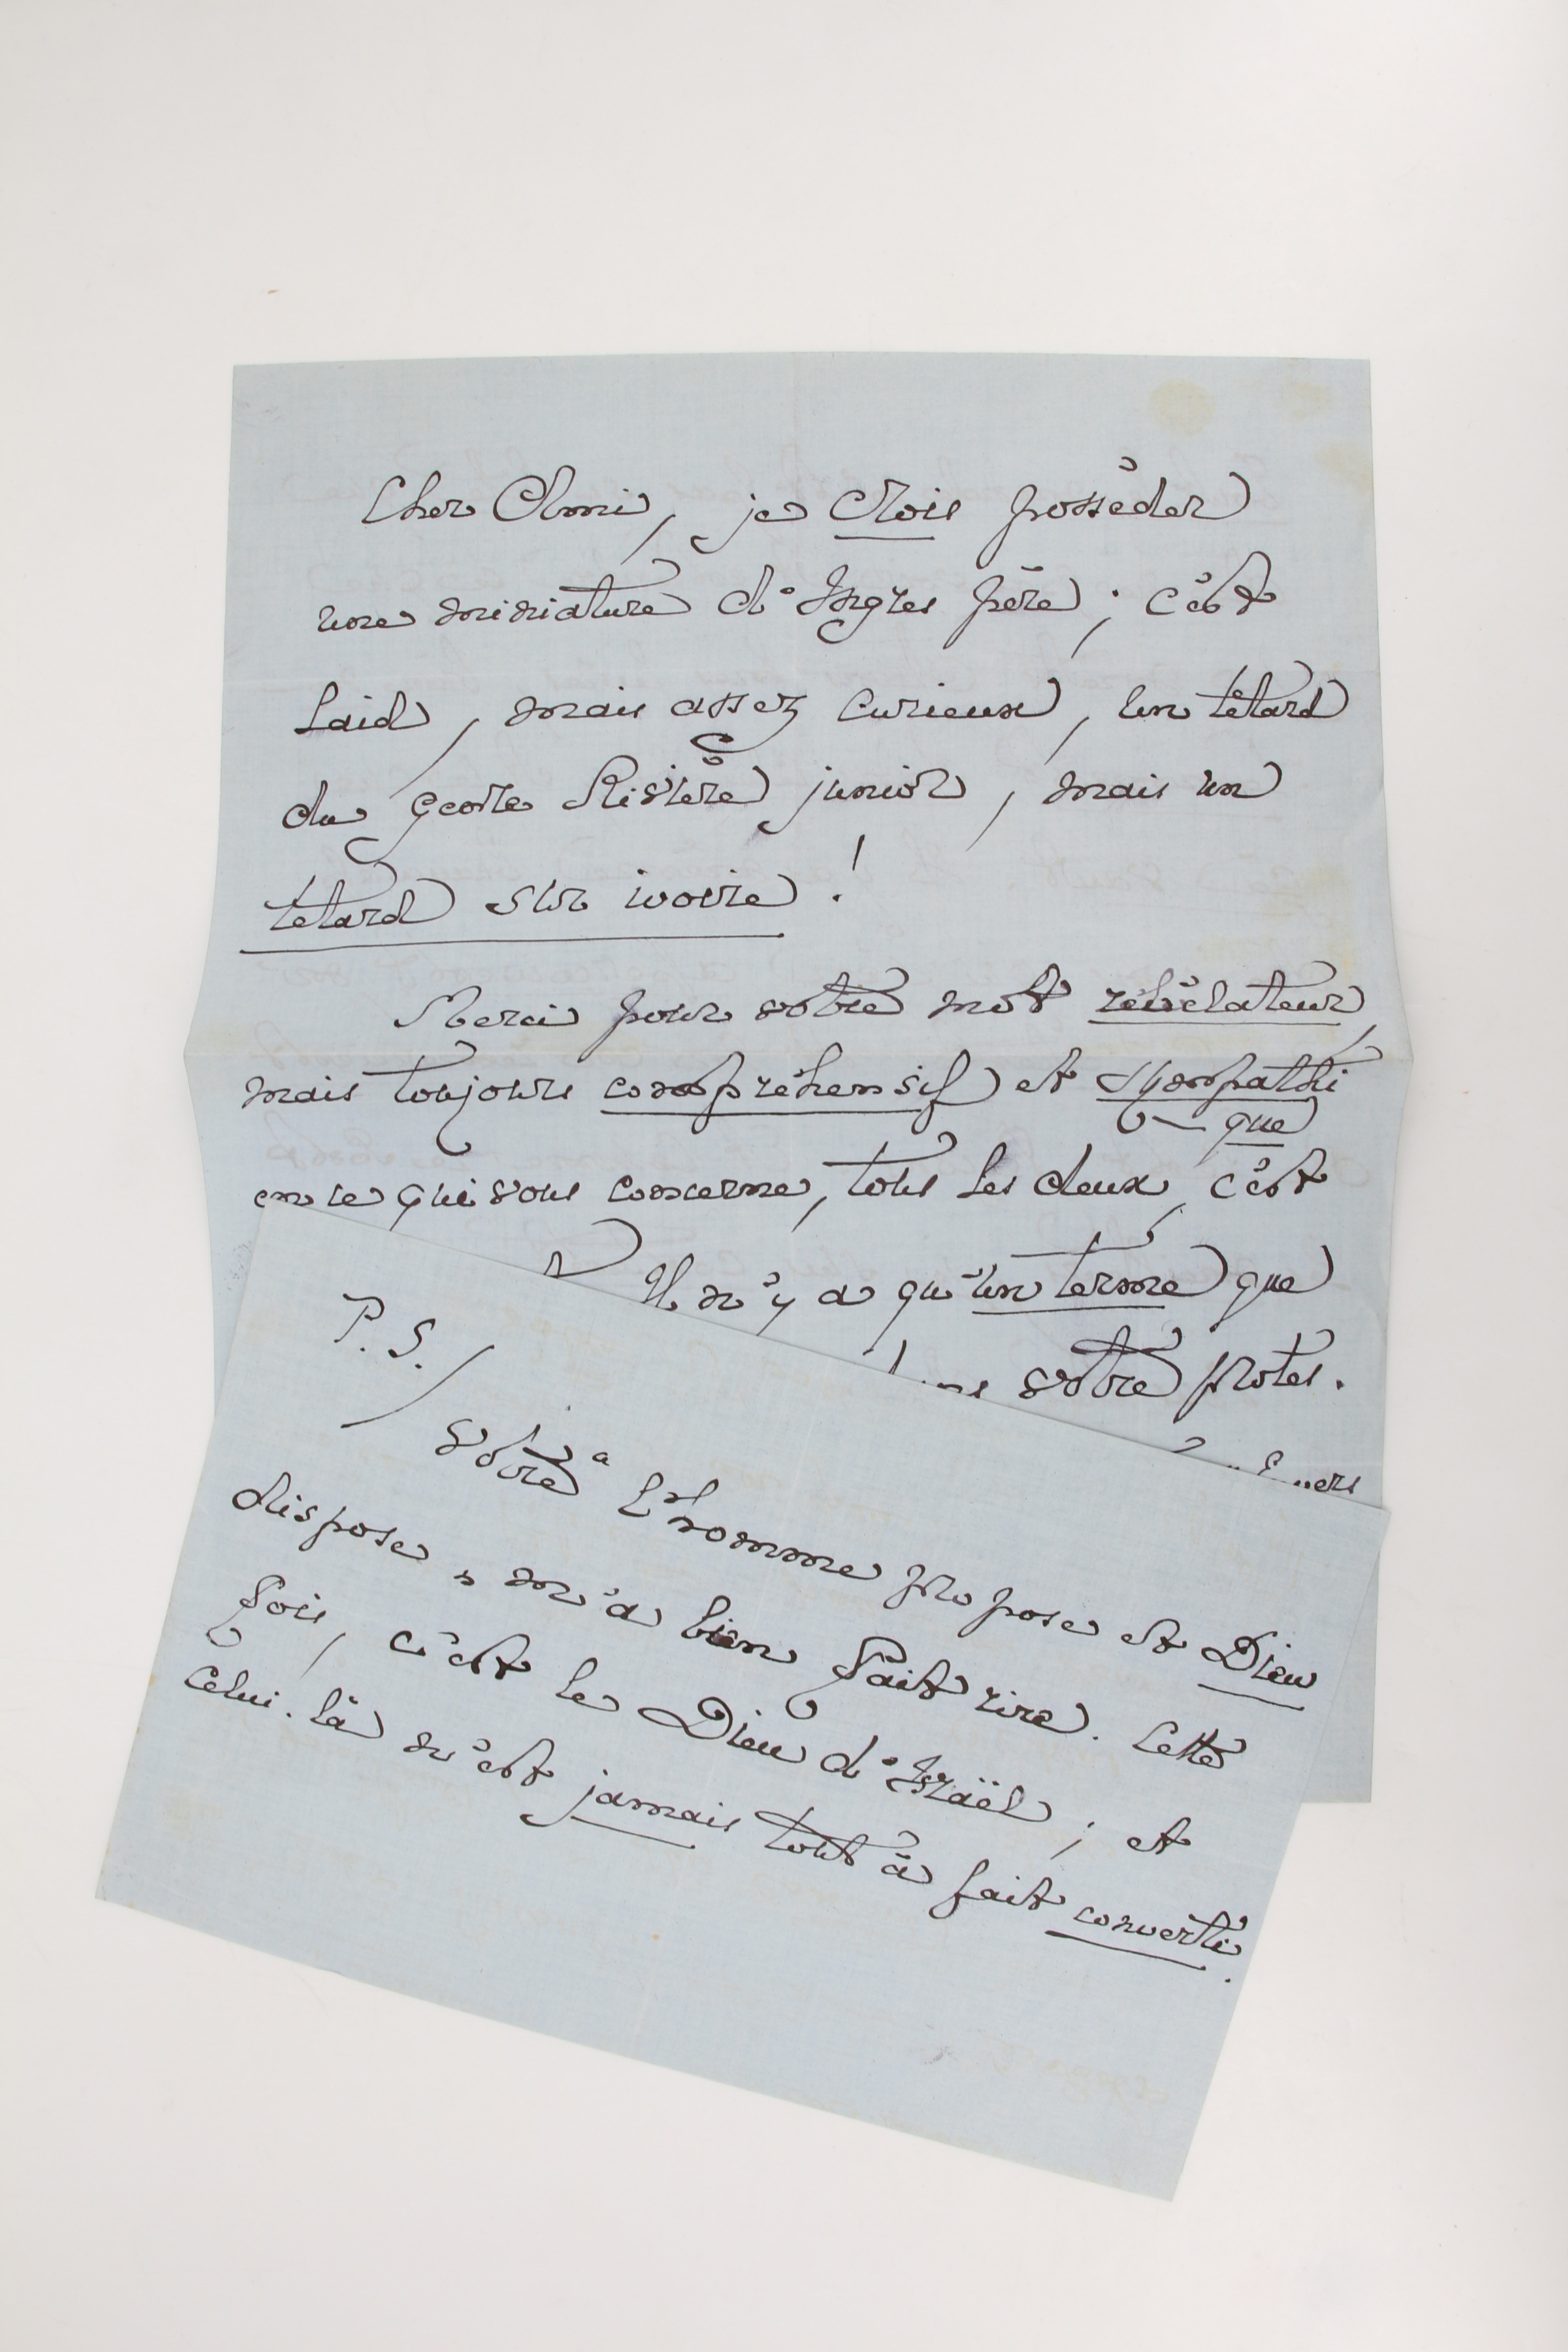 Cher Ami, je crois possèder
une miniature d'Ingres père ; c'est
laid, mais assez curieux, un têtard
du genre Rivière junior, mais un
tetard sur ivoire !
Merci pour votre mot révèlateur,
mais toujours comprèhensif et sympathi
que
en ce qui vous concerne, tous les deux, c'est
Il n'y a qu'un terme que
votre protes.
P. S. /
votre " L'homme propose et Dieu
dispose " m'a bien fait rire. Cette
fois, c'est le Dieu d'Israël ; et
celui-là n'est jamais tout à fait converti.